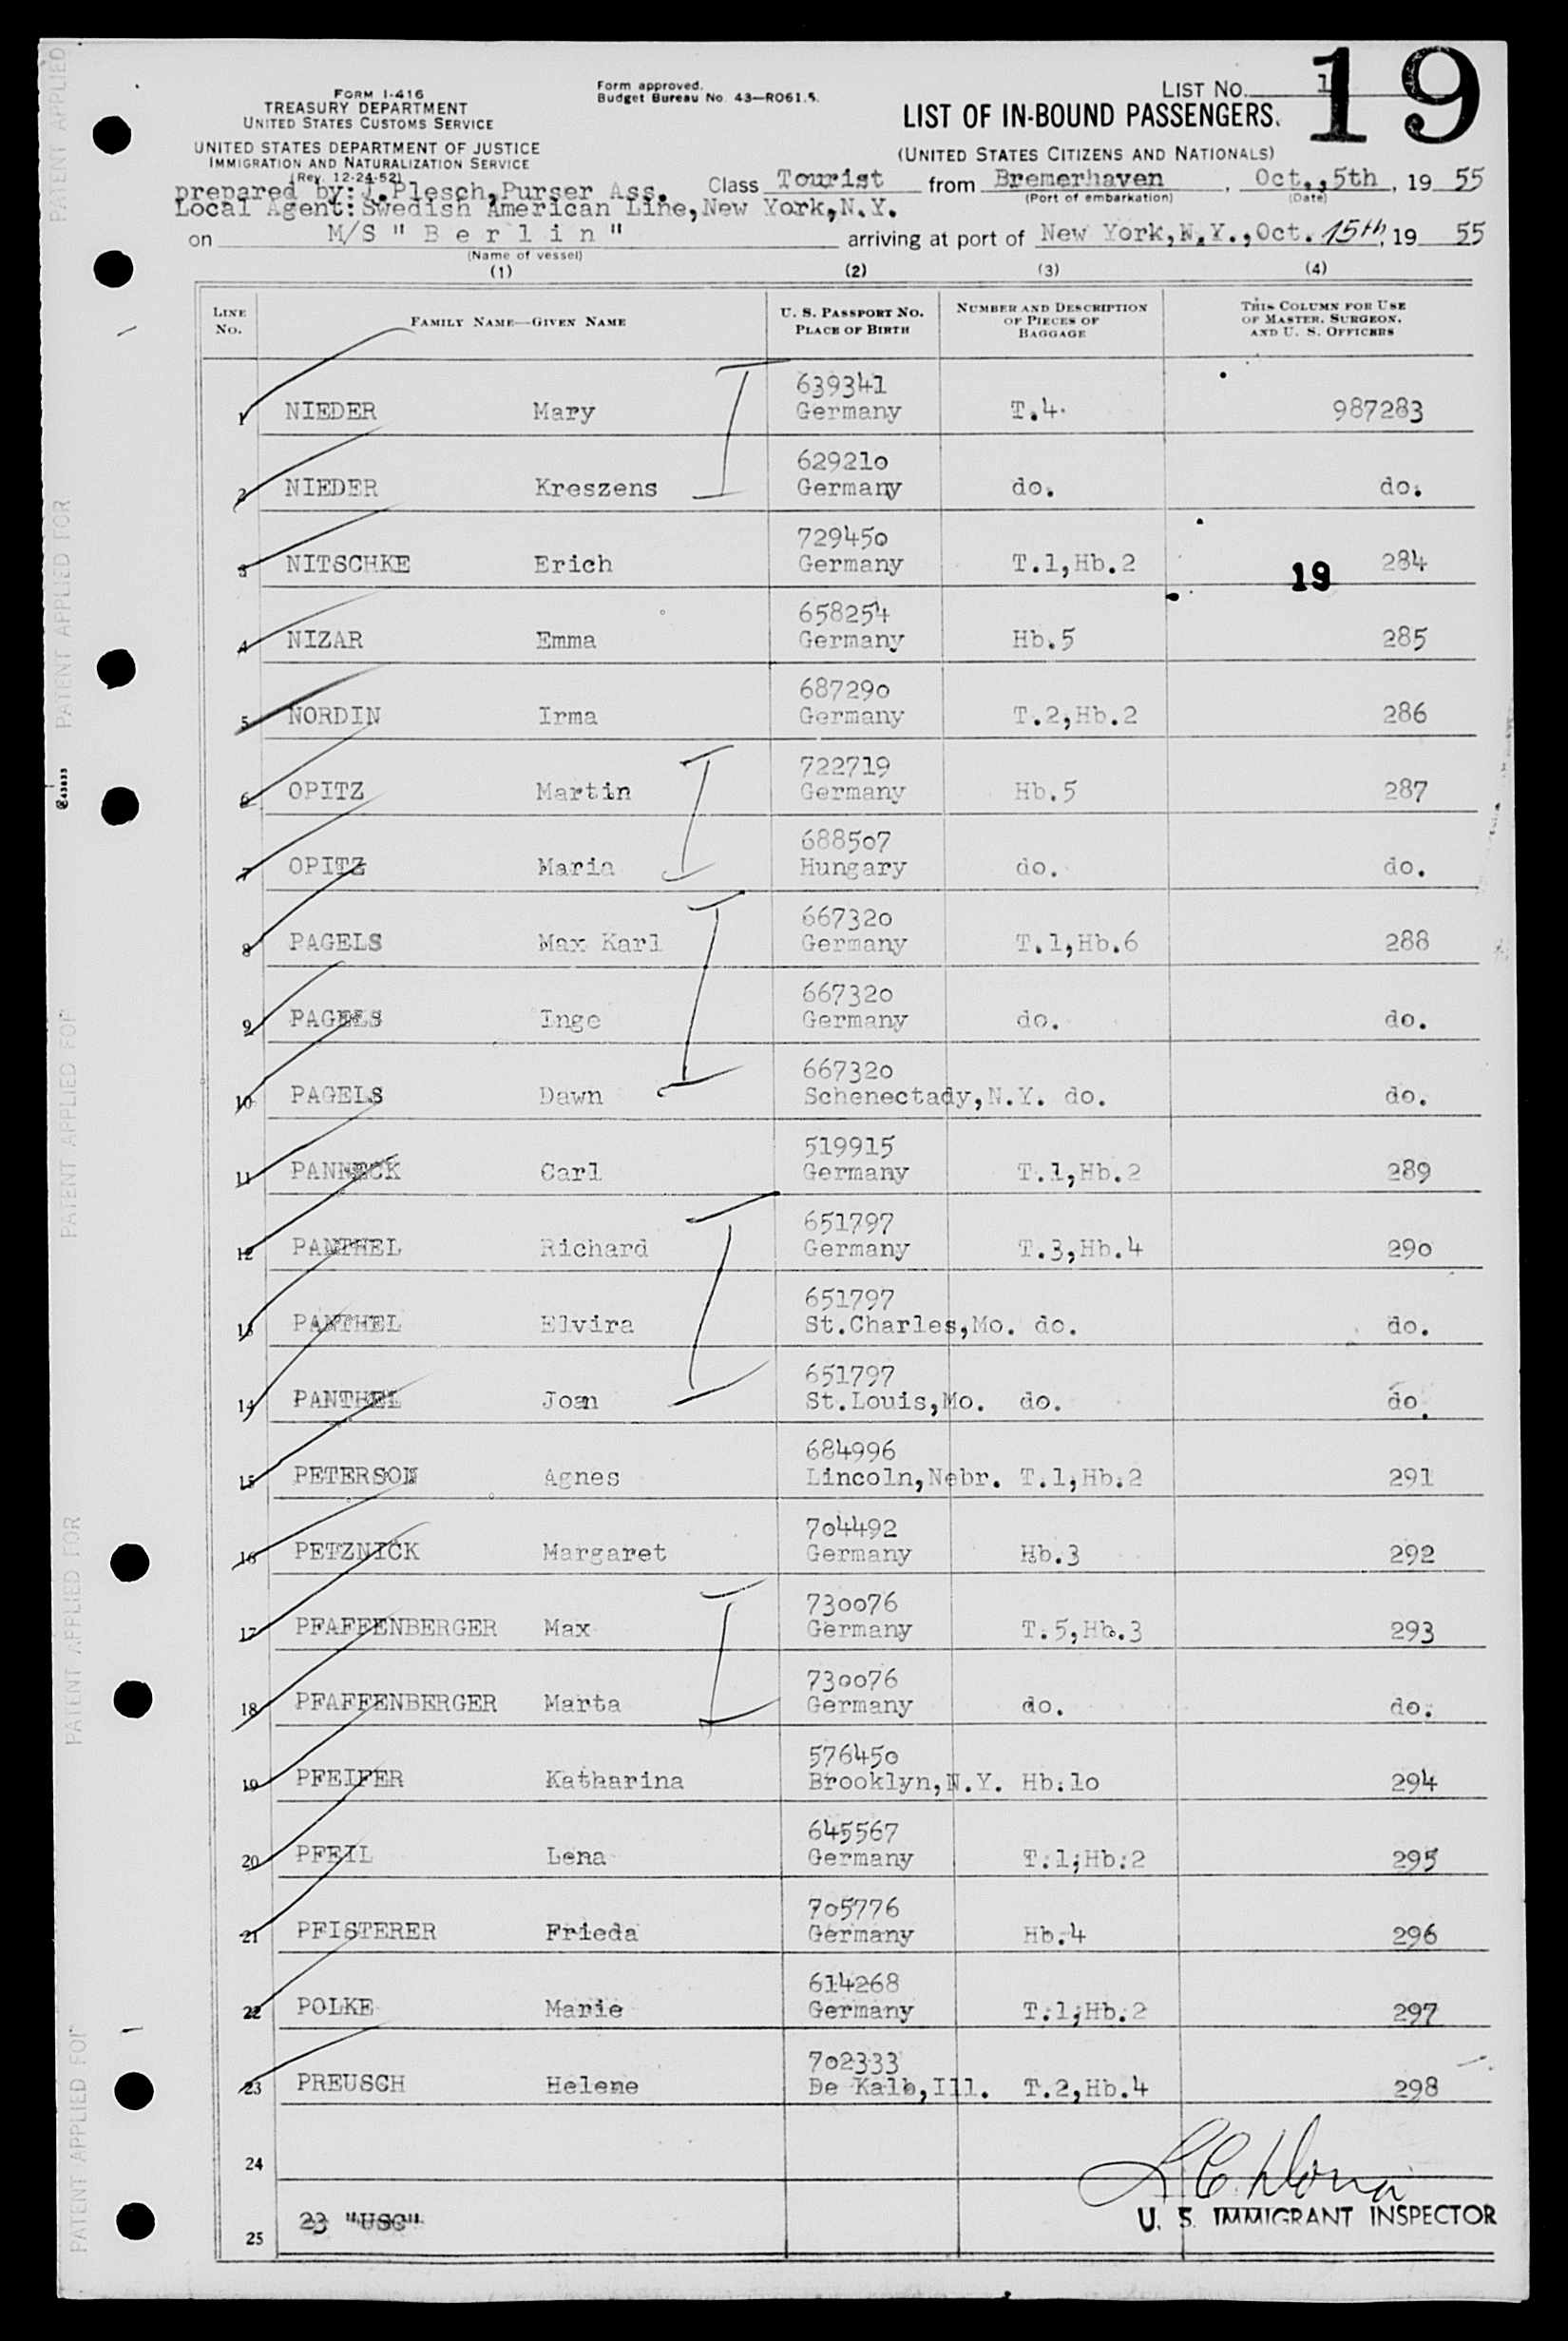 19
FORM I-416
TREASURY DEPARTMENT
UNITED STATES CUSTOMS SERVICE
UNITED STATES DEPARTMENT OF JUSTICE
IMMIGRATION AND NATURALIZATION SERVICE
(Rev. 12-24-52)
Form approved.
Budget Bureau No. 43—R061.5.
LIST NO. 1
LIST OF IN-BOUND PASSENGERS.
(UNITED STATES CITIZENS AND NATIONALS)
prepared by: J.Plesch,Purser Ass. Class Tourist from Bremerhaven, Oct.,5th, 19 55
(Port of embarkation) (Date)
Local Agent: Swedish American Line,New York,N.Y.
on M/S " B e r l i n " arriving at port of New York,N.Y.,Oct. 15th, 19 55
(Name of vessel)
(1) (2) (3) (4)
LINE NO. FAMILY NAME—GIVEN NAME U. S. PASSPORT NO. PLACE OF BIRTH NUMBER AND DESCRIPTION OF PIECES OF BAGGAGE THIS COLUMN FOR USE OF MASTER, SURGEON, AND U. S. OFFICERS
639341
1 NIEDER Mary Germany T.4. 987283
629210
2 NIEDER Kreszens Germany do. do.
729450
3 NITSCHKE Erich Germany T.1,Hb.2 19 284
658254
4 NIZAR Emma Germany Hb.5 285
687290
5 NORDIN Irma Germany T.2,Hb.2 286
722719
6 OPITZ Martin Germany Hb.5 287
688507
7 OPITZ Maria Hungary do. do.
667320
8 PAGELS Max Karl Germany T.1,Hb.6 288
667320
9 PAGELS Inge Germany do. do.
667320
10 PAGELS Dawn Schenectady,N.Y. do. do.
519915
11 PANHECK Carl Germany T.1,Hb.2 289
651797
12 PANTHEL Richard Germany T.3,Hb.4 290
651797
13 PANTHEL Elvira St.Charles,Mo. do. do.
651797
14 PANTHEL Joan St.Louis,Mo. do. do.
684996
15 PETERSON Agnes Lincoln,Nebr. T.1,Hb.2 291
704492
16 PETZNICK Margaret Germany Hb.3 292
730076
17 PFAFFENBERGER Max Germany T.5,Hb.3 293
730076
18 PFAFFENBERGER Marta Germany do. do.
576450
19 PFEIFER Katharina Brooklyn,N.Y. Hb.10 294
645567
20 PFEIL Lena Germany T.1,Hb.2 295
705776
21 PFISTERER Frieda Germany Hb.4 296
614268
22 POLKE Marie Germany T.1,Hb.2 297
702333
23 PREUSCH Helene De Kalb,Ill. T.2,Hb.4 298
24
25 23 "USC"
U. S. IMMIGRANT INSPECTOR
PATENT APPLIED
PATENT APPLIED FOR
PATENT APPLIED FOR
PATENT APPLIED FOR
PATENT APPLIED FOR